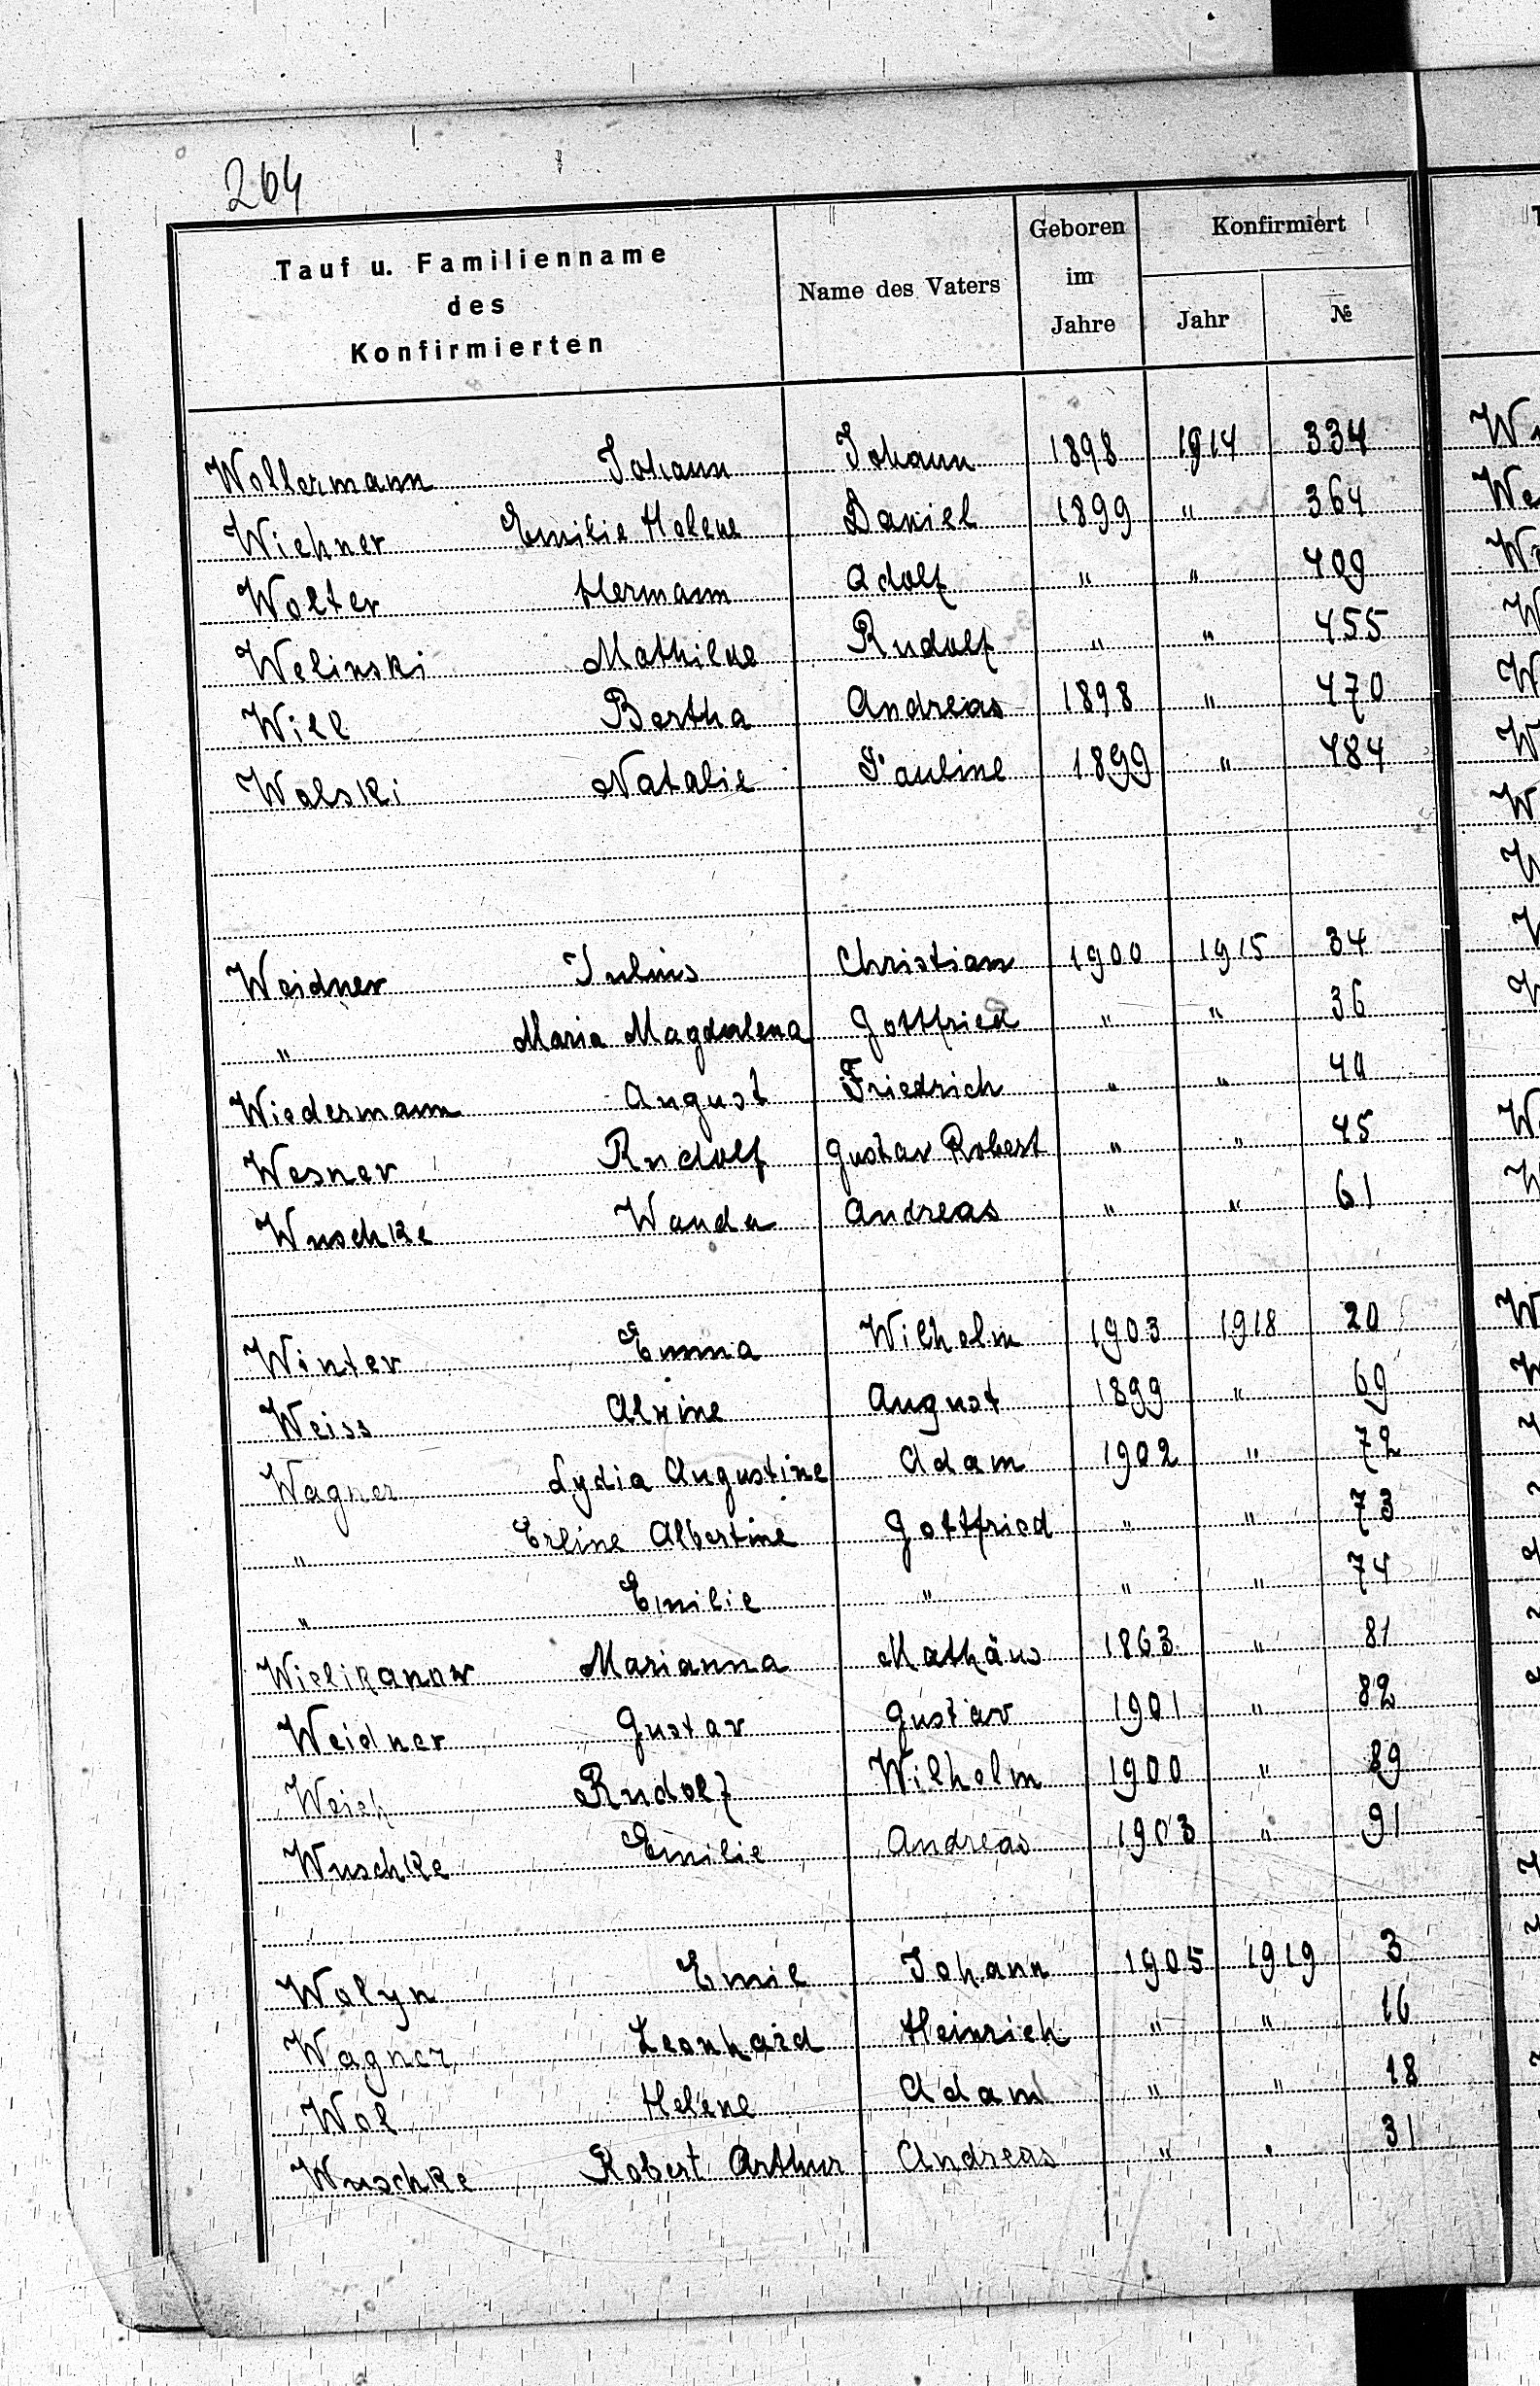 264
Tauf u. Familienname des Konfirmierten Name des Vaters Geboren im Jahre Konfirmiert Jahr №
Wollermann Johann Johann 1898 1914 334
Wiehner Emilie Helene Daniel 1899 " 364
Wolter Hermann Adolf " " 409
Welinski Mathilde Rudolf " " 455
Will Bertha Andreas 1898 " 470
Walski Natalie Pauline 1899 " 484
Weidner Julius Christian 1900 1915 34
" Maria Magdalena Gottfried " " 36
Wiedermann August Friedrich " " 40
Wesner Rudolf Gustav Robert " " 45
Wuschke Wanda Andreas " " 61
Winter Emma Wilhelm 1903 1918 20
Weiss Alvine August 1899 " 69
Wagner Lydia Augustine Adam 1902 " 72
" Erline Albertine Gottfried " " 73
" Emilie " " " 74
Wielikanow Marianna Mathäus 1863 " 81
Weidner Gustav Gustav 1901 " 82
Rudolf Wilhelm 1900 " 89
Wuschke Emilie Andreas 1903 " 91
Walyn Emil Johann 1905 1919 3
Wagner Leonhard Heinrich " " 16
Wol Helene Adam " " 18
Wuschke Robert Arthur Andreas " " 31